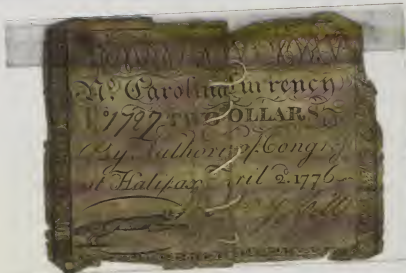 No. Carolina Currency
No 1797 TWO DOLLARS
By Authority of Congre
at Halifax April 2d. 1776